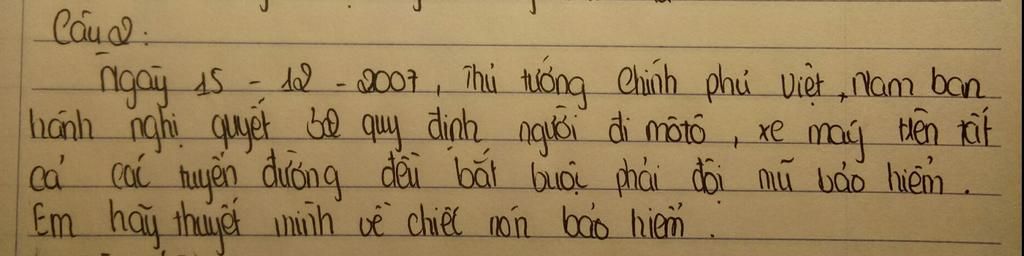 Câu 2:
Ngày 15 - 12 - 2007, Thủ tướng Chính phủ Việt Nam ban
hành nghị quyết 32 quy định người đi môtô, xe máy trên tất
cả các tuyến đường đều bắt buộc phải đội mũ bảo hiểm.
Em hãy thuyết minh về chiếc nón bảo hiểm.